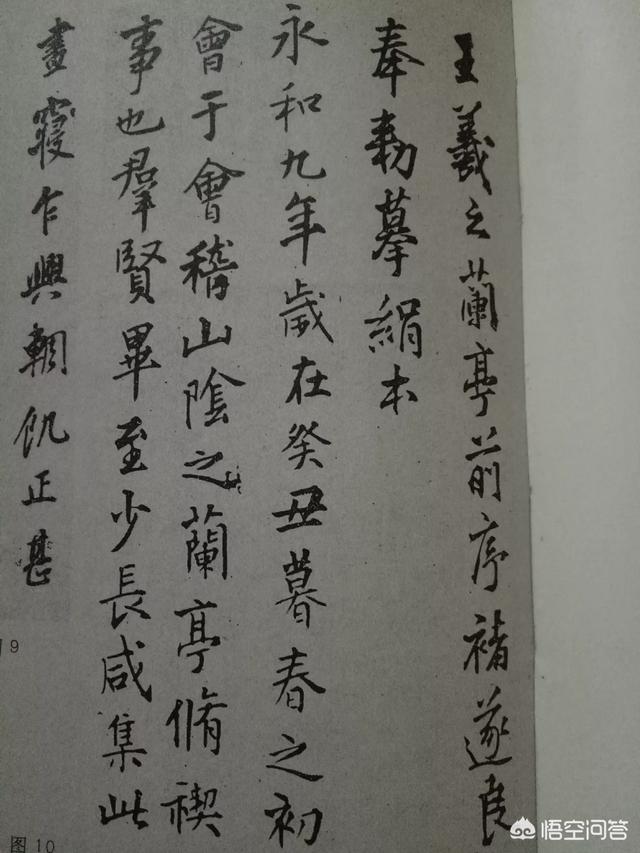 王羲之蘭亭前序褚遂良
奉勑摹絹本
永和九年歲在癸丑暮春之初
會于會稽山陰之蘭亭脩禊
事也羣賢畢至少長咸集此
晝寢乍興輖飢正甚
9
图 10
悟空问答